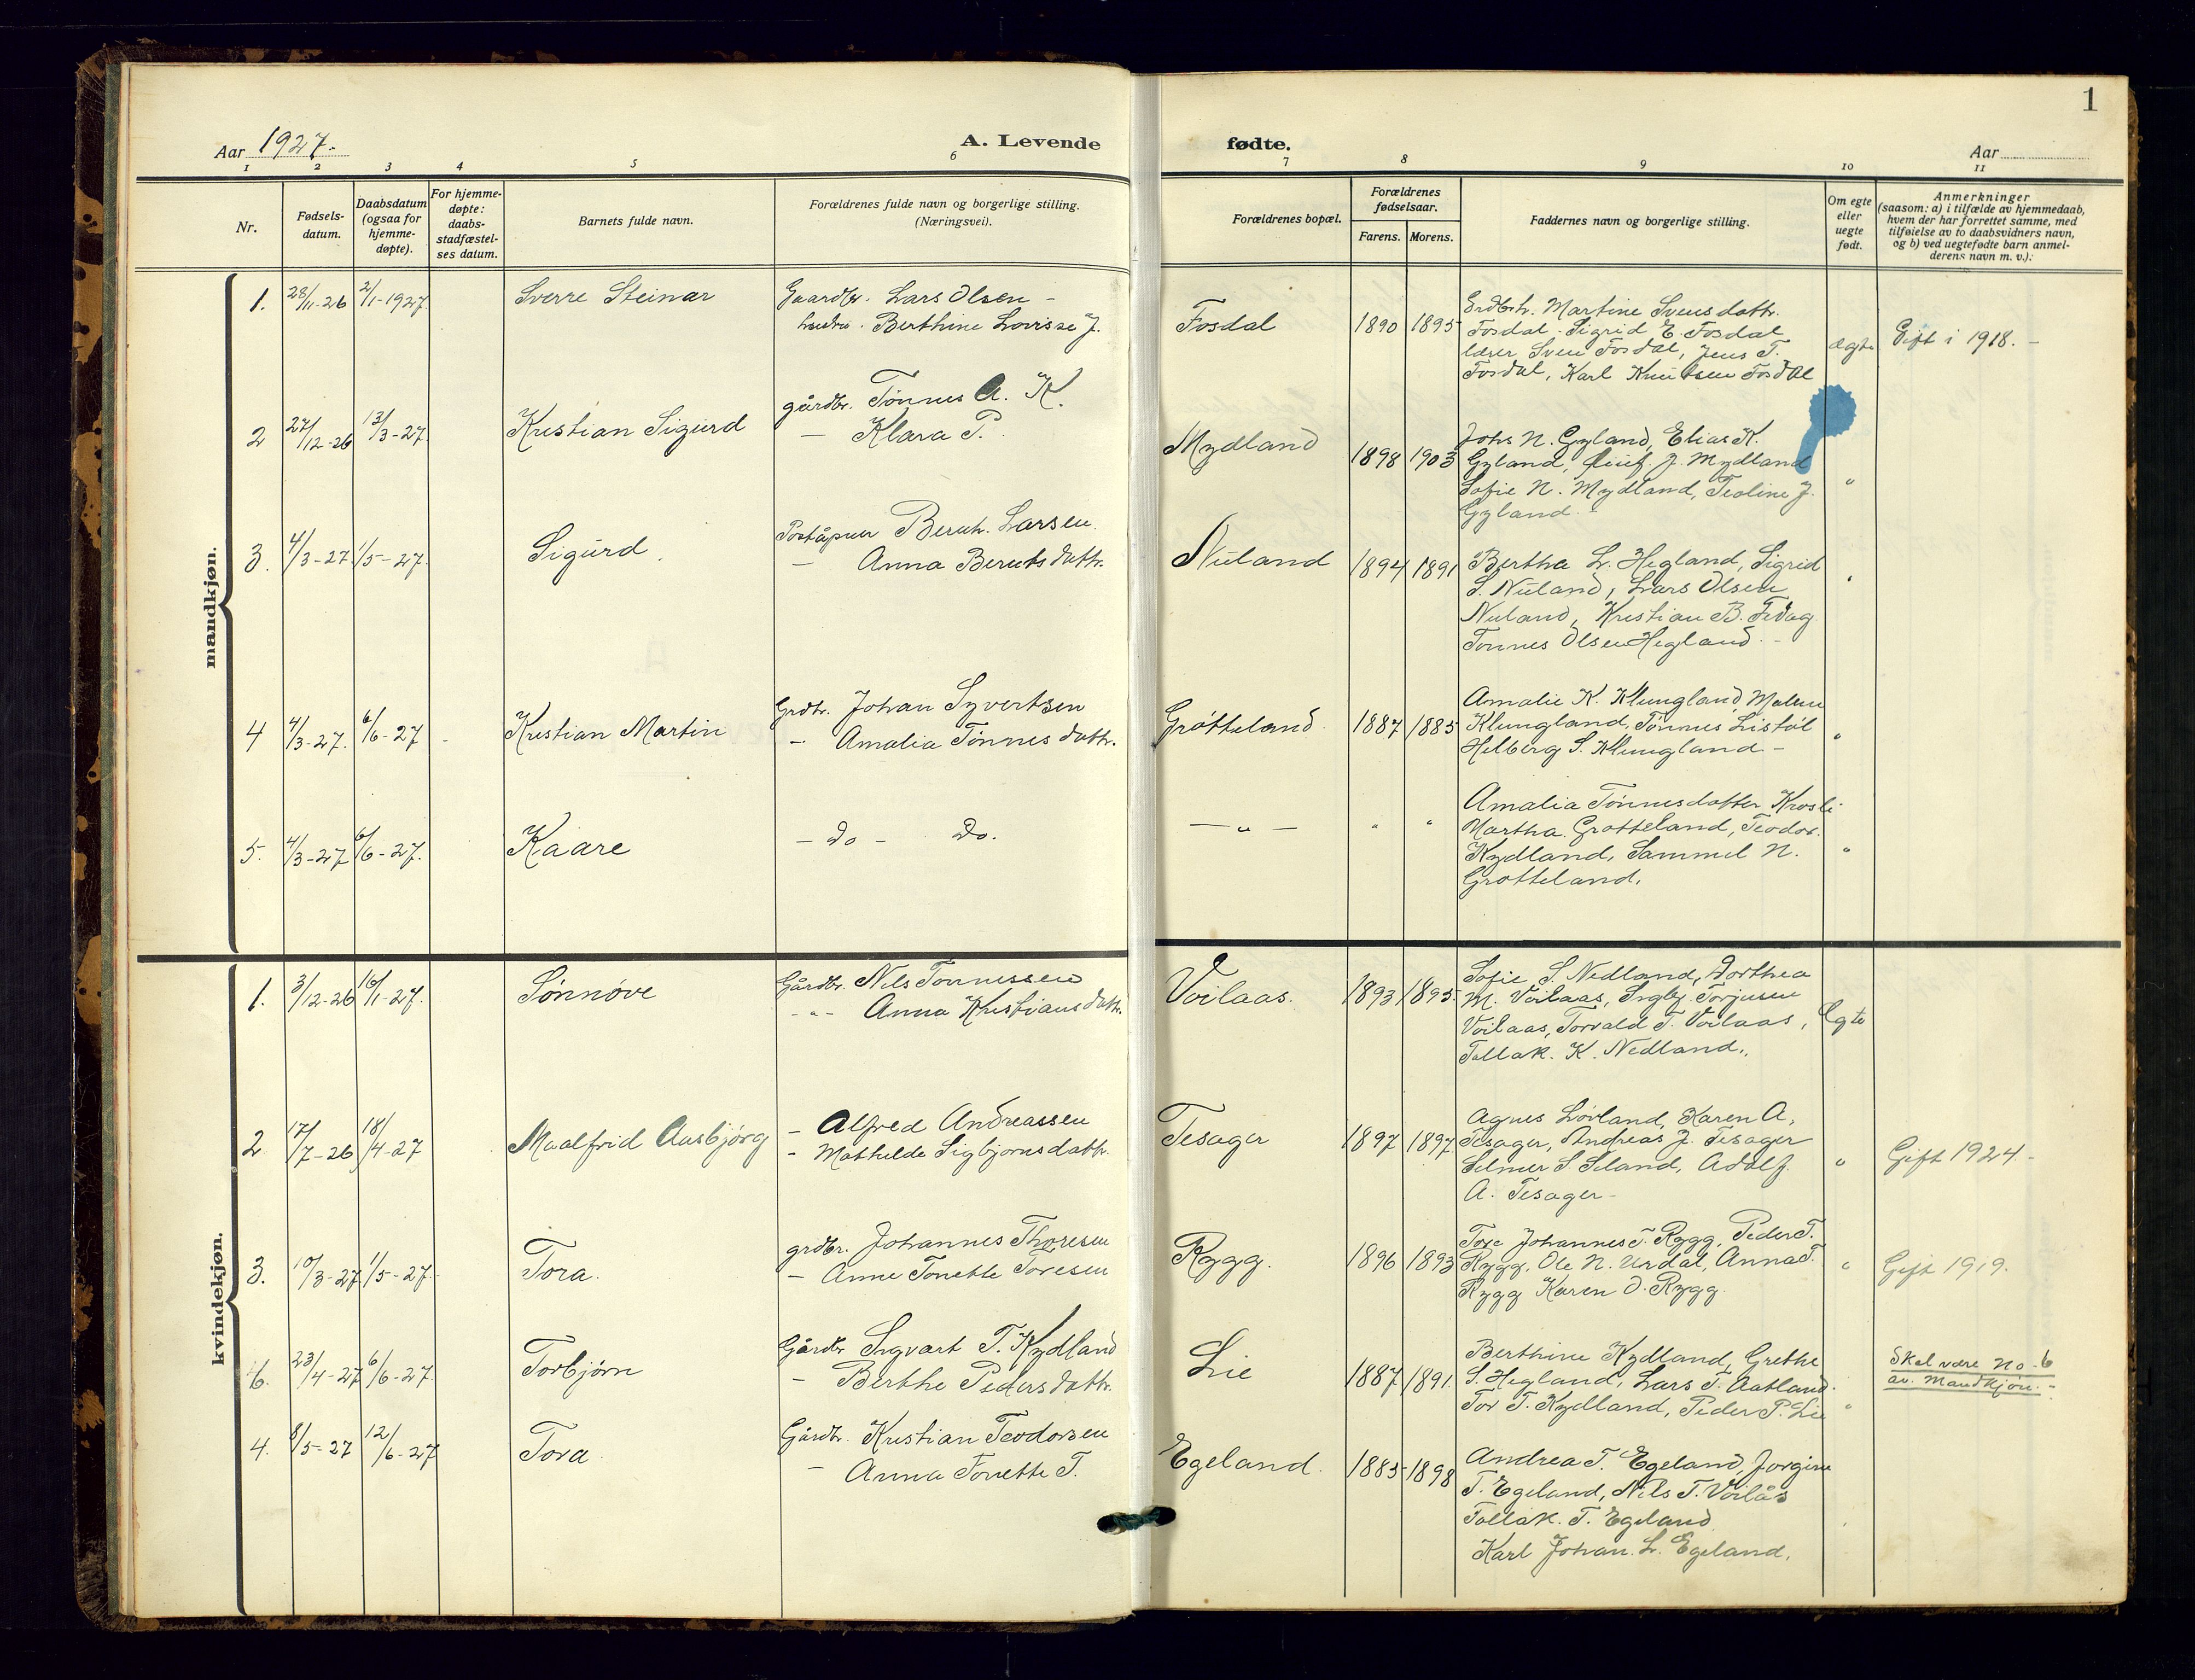 1
Aar 1927.
A. Levende
fødte.
Aar
1 2 3 4 5 6 7 8 9 10 11
Nr.
Fødsels-
datum.
Daabsdatum
(ogsaa for
hjemme-
døpte).
For hjemme-
døpte:
daabs-
stadfæstel-
ses datum.
Barnets fulde navn.
Forældrenes fulde navn og borgerlige stilling.
(Næringsvei).
Forældrenes bopæl.
Forældrenes
fødselsaar.
Farens. Morens.
Faddernes navn og borgerlige stilling.
Om egte
eller
uegte
født.
Anmerkninger
(saasom: a) i tilfælde av hjemmedaab,
hvem der har forrettet samme, med
tilføielse av to daabsvidners navn,
og b) ved uegtefødte barn anmel-
derens navn m. v.).
mandkjøn.
1. 28/11-26 2/1-1927. Sverre Steinar
Gaardbr. Lars Olsen -
hustru. Berthine Lovisse J.
Fosdal 1890 1895
Grdbrh. Martine Svensdattr.
Fosdal. Sigrid E. Fosdal
lærer Sven Fosdal, Jens T.
Fosdal, Karl Knutsen Fosdal
ægte
Gift i 1918. -
2 27/12-26 13/3-27 Kristian Sigurd
gårdbr. Tønnes A. K.
- Klara P.
Mydland 1898 1903
Johs N. Gyland, Elias K.
Gyland, J. Mydland
Sofie N. Mydland, Teoline J.
Gyland.
"
3. 4/3-27 1/5-27. Sigurd.
Poståpner Bernh. Larsen.
- Anna Berntsdattr.
Nuland 1894 1891
Bertha L. Hegland, Sigrid
S. Nuland, Lars Olsen
Nuland, Kristian B. Fedog
Tonnes Olsen Hegland. -
"
4 4/3-27. 6/6-27 Kristian Martin
Grdbr. Johan Syvertsen
- Amalia Tønnesdattr.
Grøtteland 1887 1885
Amalie K. Klungland, Malene
Klungland, Tønnes Listøl
Helberg S. Klungland -
"
5. 4/3-27 6/6-27. Kaare
- do - Do.
- " - " "
Amalia Tønnesdatter Krosli
Martha Grotteland, Teodor.
Kydland, Sammel N.
Grotteland.
"
kvindekjøn.
1. 3/12-26 16/1-27. Sønnøve
Gårdbr. Nils Tonnessen
- " - Anna Kristiansdattr.
Voilaas. 1893 1895.
Sofie S. Nedland, Dorthea
M. Voilaas, Ingbj. Torjusen
Voilaas, Torvald T. Voilaas,
Tallak. K. Nedland.
Egte
2 17/7-26 18/4-27 Maalfrid Aasbjørg
- Alfred Andreassen
- Mathilde Sigbjornsdattr.
Tesager 1897 1897
Agnes Lovland, Karen A.
Tesager, Andreas J. Tesager
Selmer S. Seland, Adolf
A. Tesager -
"
Gift 1924 -
3. 10/3-27 1/5-27. Tora.
grdbr. Johannes Thoresen
- Anne Tonette Toresen
Rygg. 1896 1893
Tore Johannes T. Rygg, Peder T.
Rygg, Ole N. Urdal, Anna T.
Rygg Karen O. Rygg.
"
Gift 1919.
6. 23/4-27 6/6-27. Torbjørn
Gårdbr Ingvart T. Kydland
- Berthe Pedersdattr.
Lie 1887 1891
Berthine Kydland, Grethe
S. Hegland, Lars T. Aatland.
Tor T. Kydland, Peder P. Lie
"
Skal være No. 6
av. Mandkjøn. -
4. 8/5-27 12/6-27 Tora
Gårdbr. Kristian Teodorsen
- Anna Tonette T.
Egeland. 1885 1898
Andrea T. Egeland, Jorgine
T. Egeland, Nils T. Voilås
Tallak. T. Egeland
Karl Johan. L. Egeland.